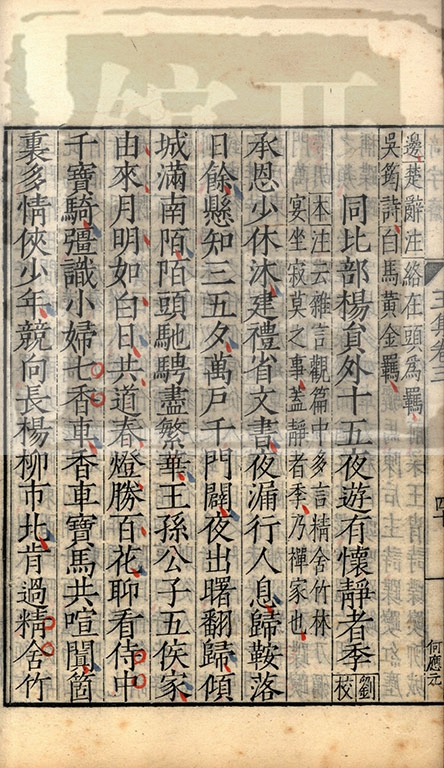 集卷三
何應元
邊楚辭注絡在頭爲羈
吳筠詩白馬黃金羈
同比部楊貟外十五夜遊有懷靜者季劉校
本注云雜言觀篇中多言精舍竹林
宴坐寂莫之事蓋靜者季乃禪家也
承恩少休沐建禮省文書夜漏行人息歸鞍落
日餘懸知三五夕萬戶千門闢夜出曙翻歸傾
城滿南陌陌頭馳騁盡繁華王孫公子五侯家
由來月明如白日共道春燈勝百花聊看侍中
千寶騎彊識小婦七香車香車寶馬共喧闐箇
裏多情俠少年競向長楊柳市北肯過精舍竹